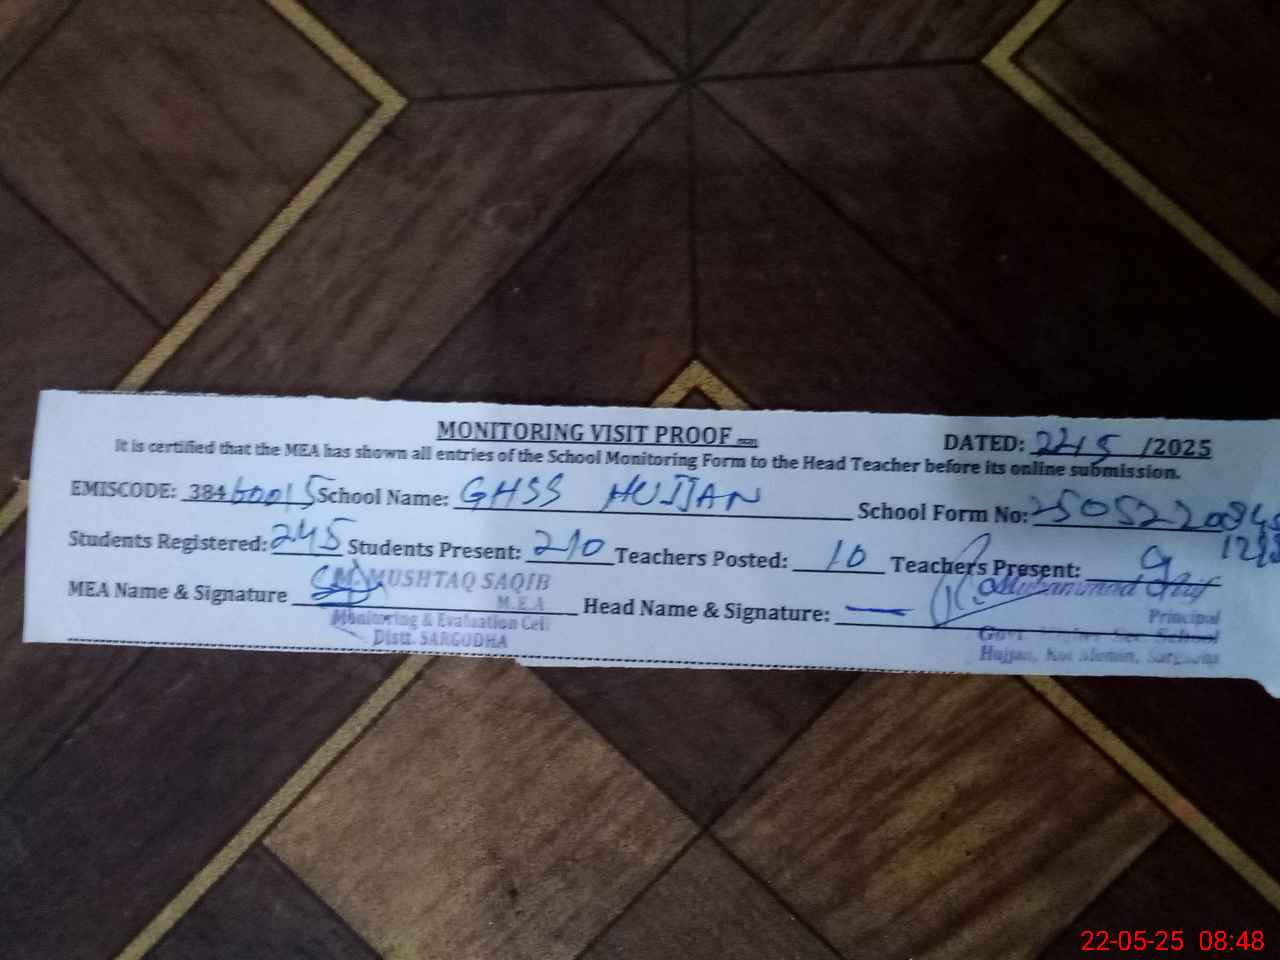 MONITORING VISIT PROOF
DATED: 22/5 /2025
It is certified that the MEA has shown all entries of the School Monitoring Form to the Head Teacher before its online submission.
EMISCODE: 38460015 School Name: GHSS HUJJAN School Form No:
Students Registered: 245 Students Present: 210 Teachers Posted: 10 Teachers Present: 9
MEA Name & Signature M. MUSHTAQ SAQIB Head Name & Signature: Muhammad
M.E.A Principal
Monitoring & Evaluation Cell Govt. Higher Sec. School
Distt. SARGODHA Hujjan, Kot Momin, Sargodha
22-05-25 08:48